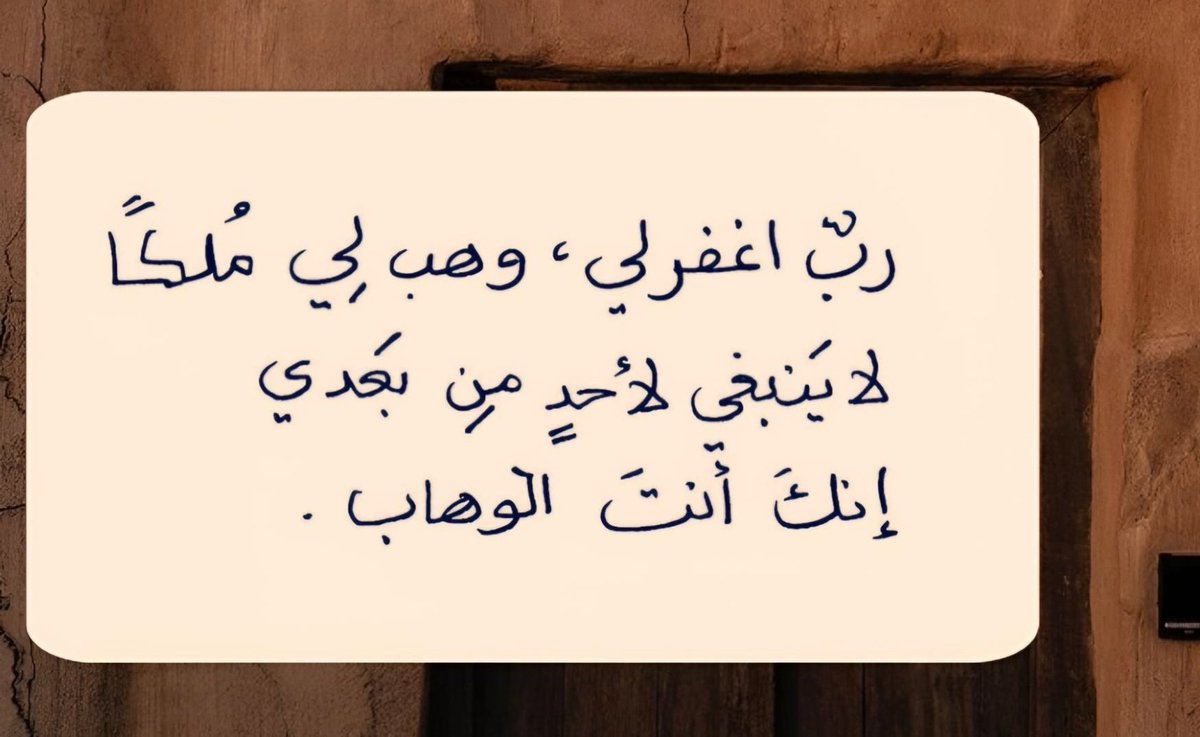 ربّ اغفرلي، وهب لِي مُلكاً
لا يَنبغي لأحدٍ مِن بَعدي
إنكَ أنتَ الوهاب .